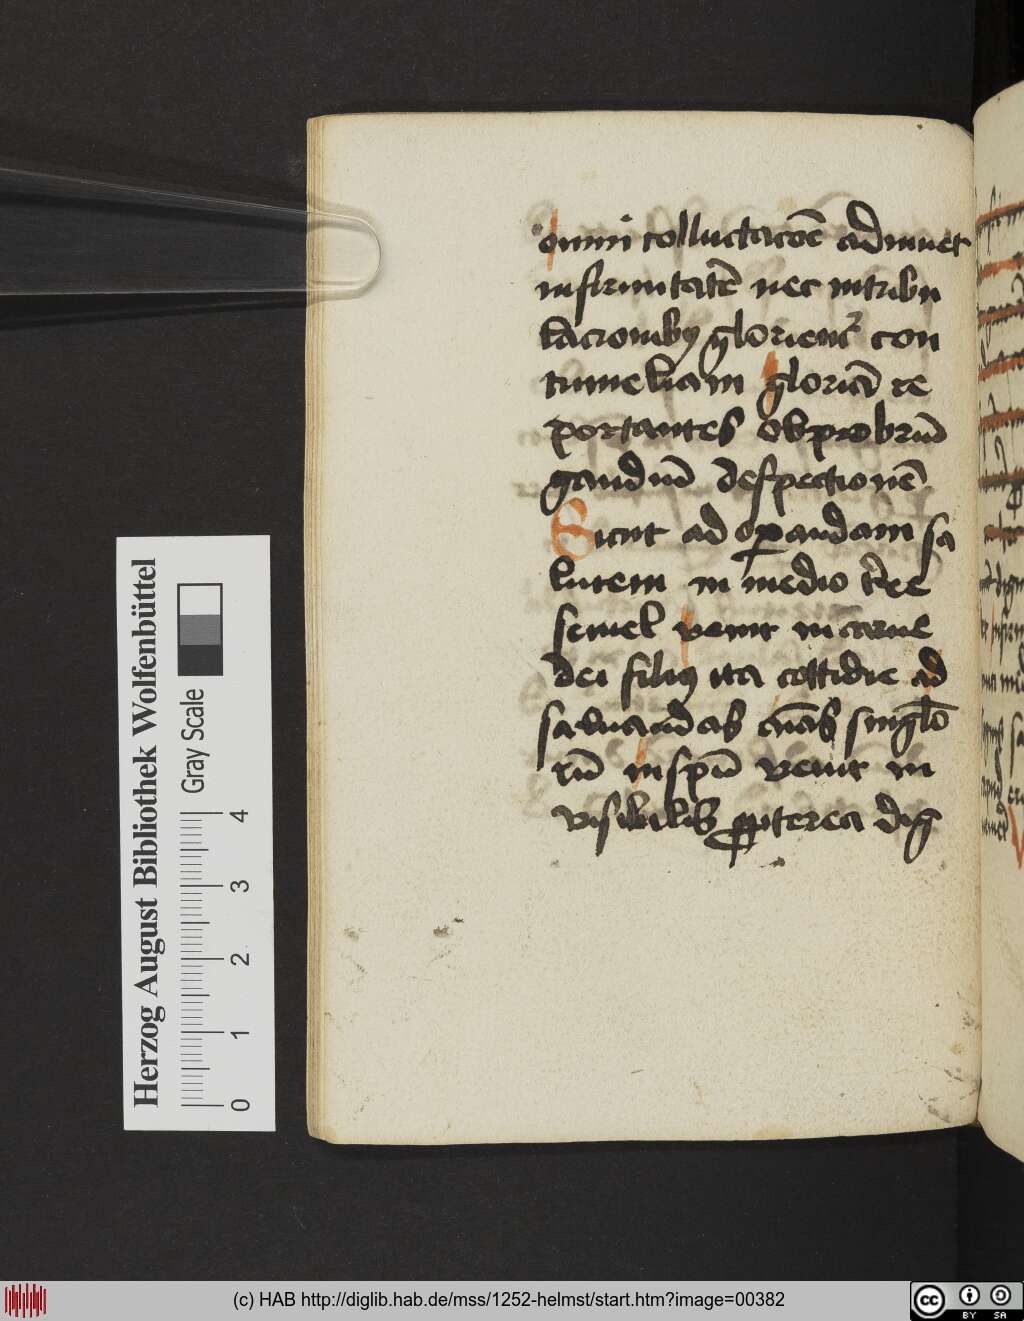 omni colluctacōe adiuuet
infirmitatē nec in tribu
lacionibꝰ glorient᷑ con
tumeliam gloriā re
portantes obprobriū
gaudiū despectionē
Sicut ad oꝑandam sa
lutem in medio t̄re
semel venit in carne
dei filiꝰ ita cottidie ad
saluandas aīas singlo
rū in spū venit in
visibilis ꝓpterea dig
Herzog August Bibliothek Wolfenbüttel
Gray Scale
0 1 2 3 4
(c) HAB http://diglib.hab.de/mss/1252-helmst/start.htm?image=00382
cc BY SA